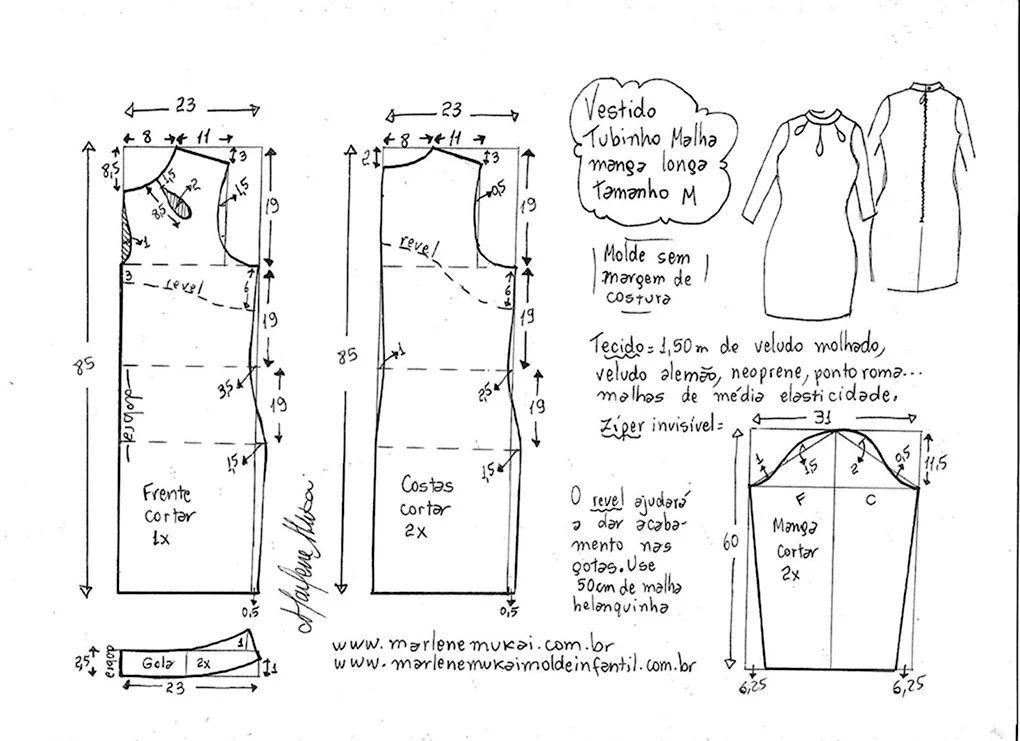 23
8 11
8,5
3
1,5
8,5
2
1,5
19
1
3
revel
6
19
85
3,5
19
dobra
1,5
Frente
cortar
1x
0,5
23
8 11
2
3
0,5
19
revel
6
19
85
1
2,5
19
1,5
Costas
cortar
2x
0,5
Vestido
Tubinho Malha
manga longa
Tamanho M
Molde sem
margem de
costura
Tecido = 1,50m de veludo molhado,
veludo alemão, neoprene, ponto roma...
malhas de média elasticidade.
Zíper invisível =
31
1
1,5
2
0,5
11,5
F C
60
Manga
cortar
2x
6,25
6,25
O revel ajudará
a dar acaba-
mento nas
gotas. Use
50cm de malha
helanquinha
Marlene Mukai
www.marlenemukai.com.br
www.marlenemukaimoldeinfantil.com.br
2,5
dobra
Gola 2x
1
1
23